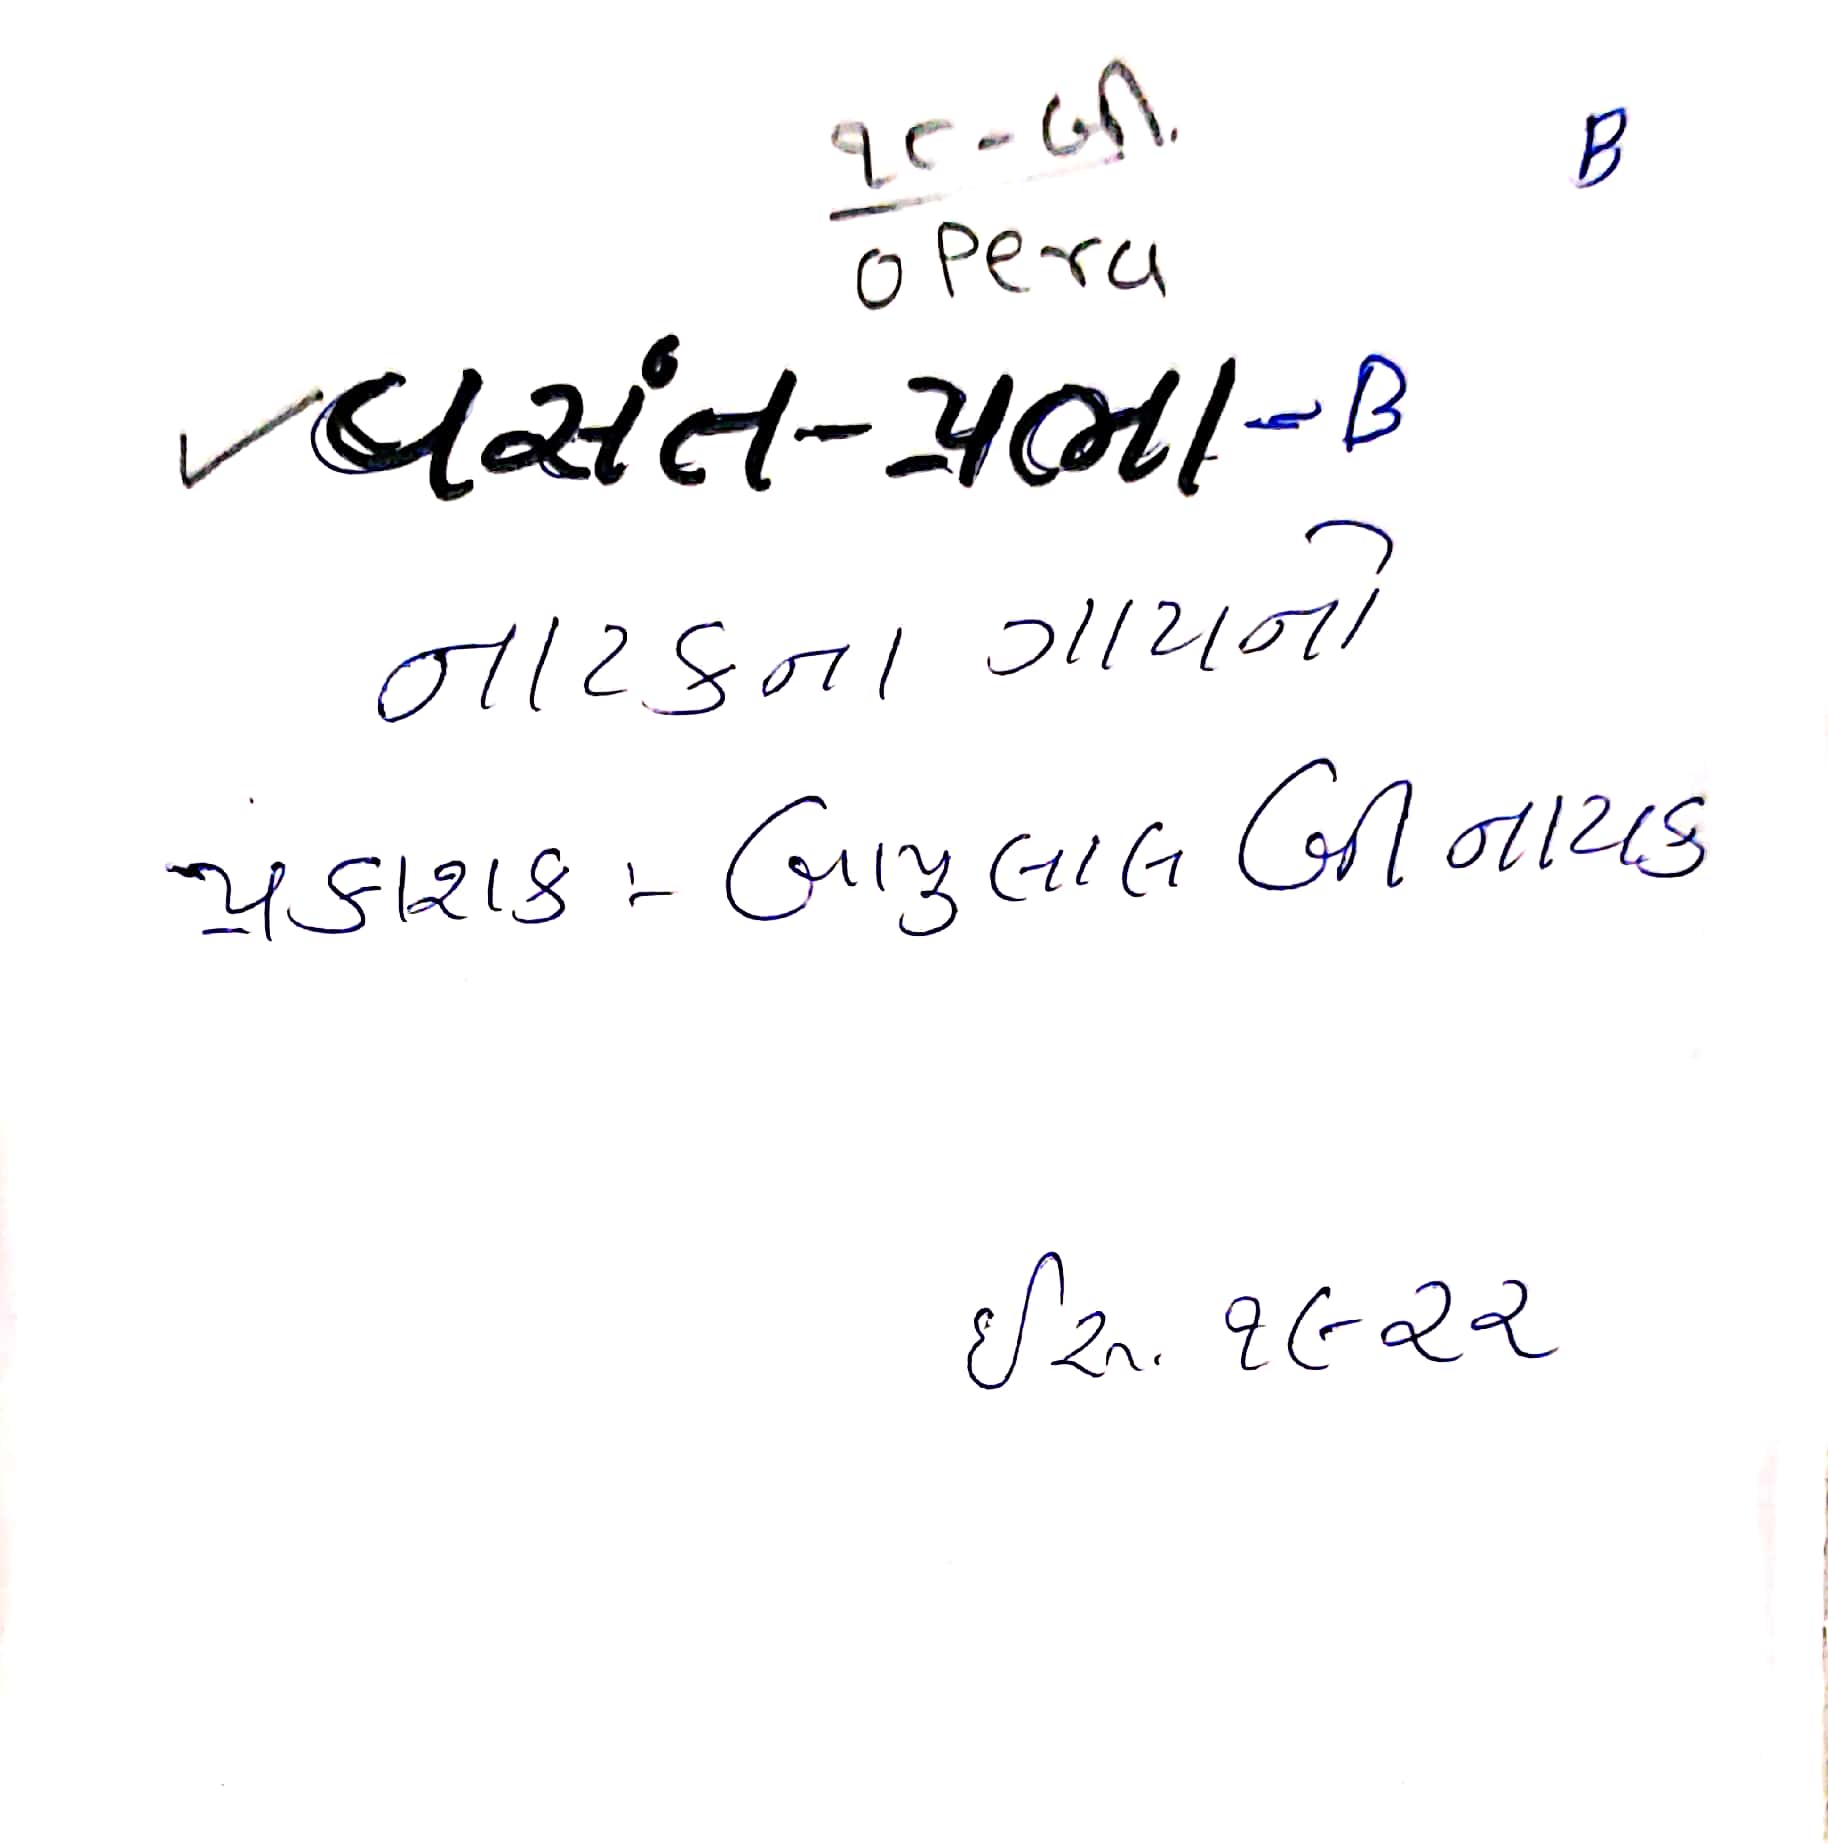 ૧૮-બી. B
opera
વસંત-પ્રભા-B
નાટકના ગાયનો
પ્રકાશક :- બાપુલાલ બી નાયક
ઈ.સ. ૧૯૨૨